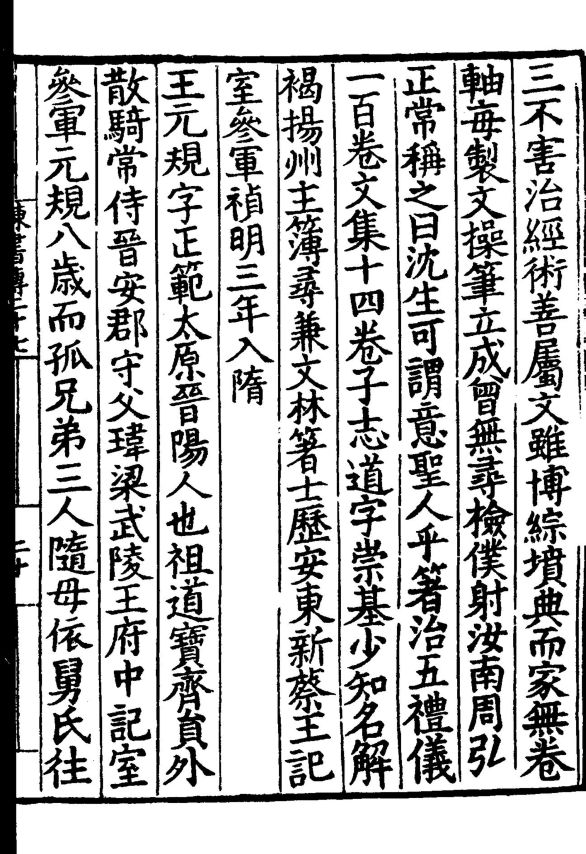 三不害治經術善屬文雖博綜墳典而家無卷
軸每製文操筆立成曾無尋檢僕射汝南周弘
正常稱之曰沈生可謂意聖人乎著治五禮儀
一百卷文集十四卷子志道字崇基少知名解
褐揚州主簿尋兼文林著士歷安東新蔡王記
室參軍禎明三年入隋
王元規字正範太原晉陽人也祖道寶齊貟外
散騎常侍晉安郡守父瑋梁武陵王府中記室
參軍元規八歲而孤兄弟三人隨母依舅氏往
陳書傳二十七
二十